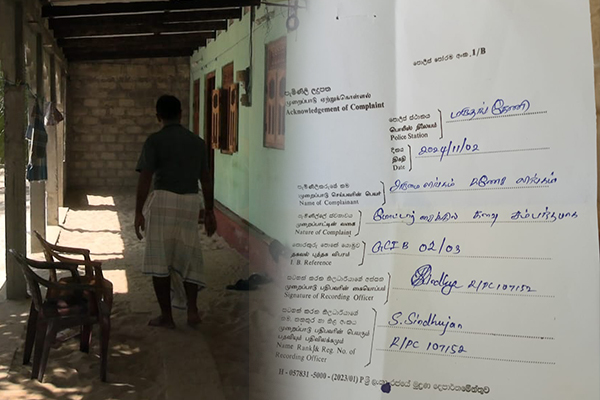 පොලිස් පෝරම අංක, 1/B
පැමිණිලි ලදුපත
முறைப்பாடு ஏற்றுக்கொள்ளல்
Acknowledgement of Complaint
පොලිස් ස්ථානය
பொலிஸ் நிலையம்
Police Station
දිනය
திகதி
Date
2024/11/02
පැමිණිලිකරුගේ නම
முறைப்பாடு செய்பவரின் பெயர்
Name of Complainant
පැමිණිල්ලේ ස්වභාවය
முறைப்பாட்டின் வகை
Nature of Complaint
තොරතුරු පොතේ යොමුව
தகவல் புத்தக விபரம்
I. B. Reference
GCIB 02/03
සටහන් කරන නිලධාරියාගේ අත්සන
முறைப்பாடு பதிபவரின் கையொப்பம்
Signature of Recording Officer
R/PC 107152
සටහන් කරන නිලධාරියාගේ
නම, තනතුර හා නිල අංකය
முறைப்பாடு பதிபவரின் பெயரும்
பதவியும் பதிவிலக்கமும்
Name Rank/& Reg. No. of
Recording Officer
S. Sindhujan
R/PC 107152
H - 057831 -5000 - (2023/01) P ශ්‍රී ලංකා රජයේ මුද්‍රණ දෙපාර්තමේන්තුව